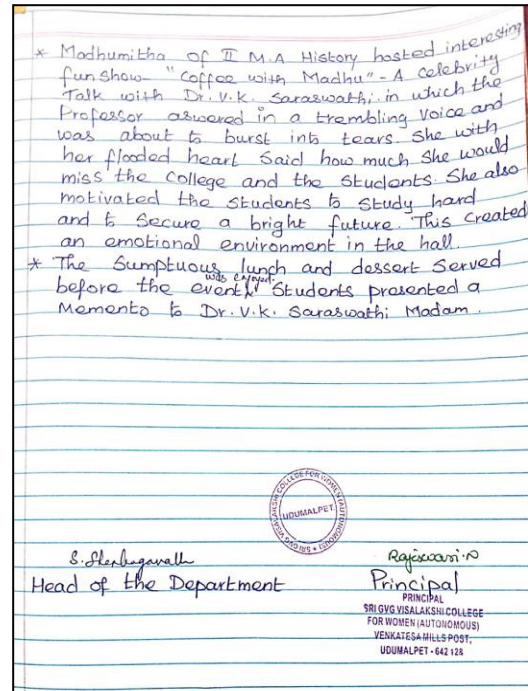 * Madhumitha of II M.A History hosted interesting
fun show- "Coffee with Madhu" - A celebrity
Talk with Dr. V.K. Saraswathi in which the
Professor aswered in a trembling voice and
was about to burst into tears. She with
her flooded heart said how much she would
miss the college and the students. She also
motivated the students to study hard
and to secure a bright future. This created
an emotional environment in the hall
* The Sumptuous lunch and dessert served
before the event was enjoyed. Students presented a
Memento to Dr. V.K. Saraswathi Madam.
SRI GVG VISALAKSHI COLLEGE FOR WOMEN (AUTONOMOUS)
UDUMALPET.
S. Shenbagavalli
Head of the Department
Rajeswari.N
Principal
PRINCIPAL
SRI GVG VISALAKSHI COLLEGE
FOR WOMEN (AUTONOMOUS)
VENKATESA MILLS POST,
UDUMALPET - 642 128